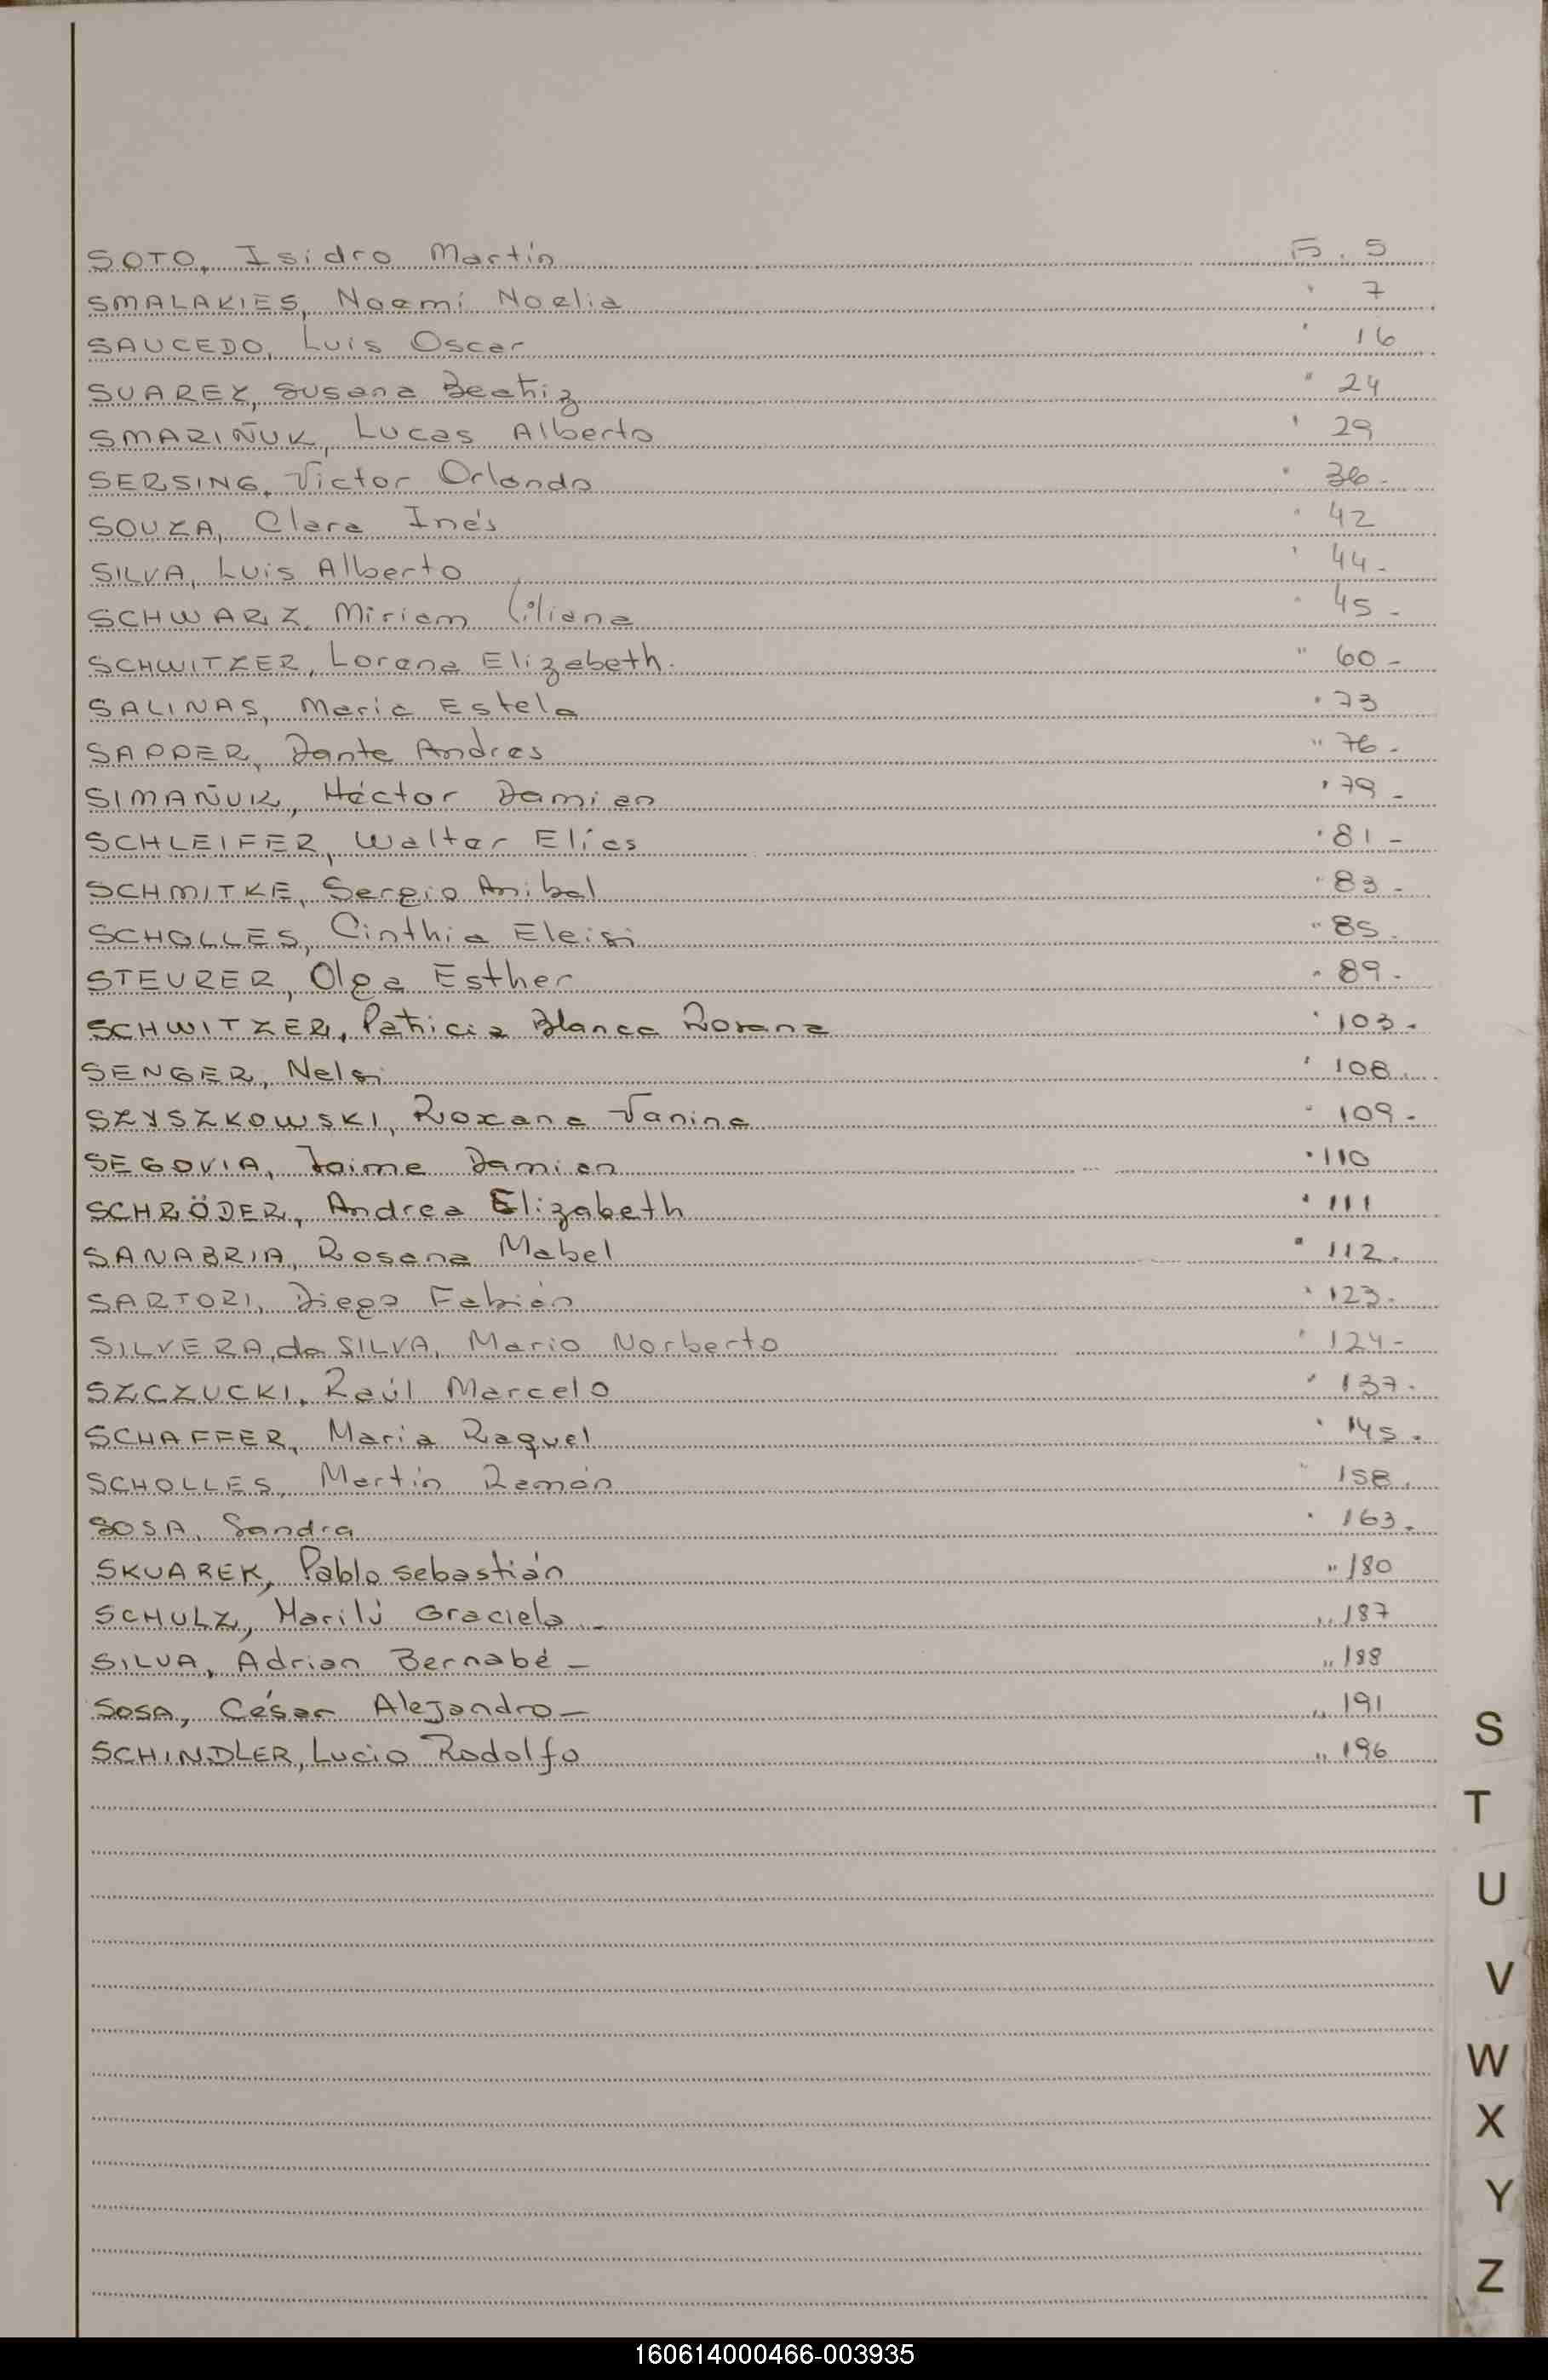 SOTO, Isidro Martín F. 5
SMALAKIES, Noemí Noelia " 7
SAUCEDO, Luis Oscar " 16
SUAREZ, Susana Beatriz " 24
SMARIÑUK, Lucas Alberto " 29
SERSING, Victor Orlando " 36-
SOUZA, Clara Inés " 42
SILVA, Luis Alberto " 44-
SCHWARZ, Miriam Liliana " 45-
SCHWITZER, Lorena Elizabeth. " 60-
SALINAS, María Estela " 73
SAPPER, Dante Andres " 76-
SIMAÑUK, Héctor Damian " 79-
SCHLEIFER, Walter Elías " 81-
SCHMITKE, Sergio Anibal " 83-
SCHOLLES, Cinthia Eleisi " 85-
STEURER, Olga Esther " 89-
SCHWITZER, Patricia Blanca Rosana " 103-
SENGER, Nelsi " 108.
SZYSZKOWSKI, Roxana Vanina " 109-
SEGOVIA, Jaime Damian " 110
SCHRÖDER, Andrea Elizabeth " 111
SANABRIA, Rosana Mabel " 112.
SARTORI, Diego Fabián " 123.
SILVERA da SILVA, Mario Norberto " 124-
SZCZUCKI, Raúl Marcelo " 137.
SCHAFFER, Maria Raquel " 145.
SCHOLLES, Martín Ramón " 158.
SOSA, Sandra " 163.
SKUAREK, Pablo Sebastián " 180
SCHULZ, Marilú Graciela - " 187
SILVA, Adrian Bernabé - " 188
SOSA, César Alejandro - " 191
SCHINDLER, Lucio Rodolfo " 196
S
T
U
V
W
X
Y
Z
160614000466-003935